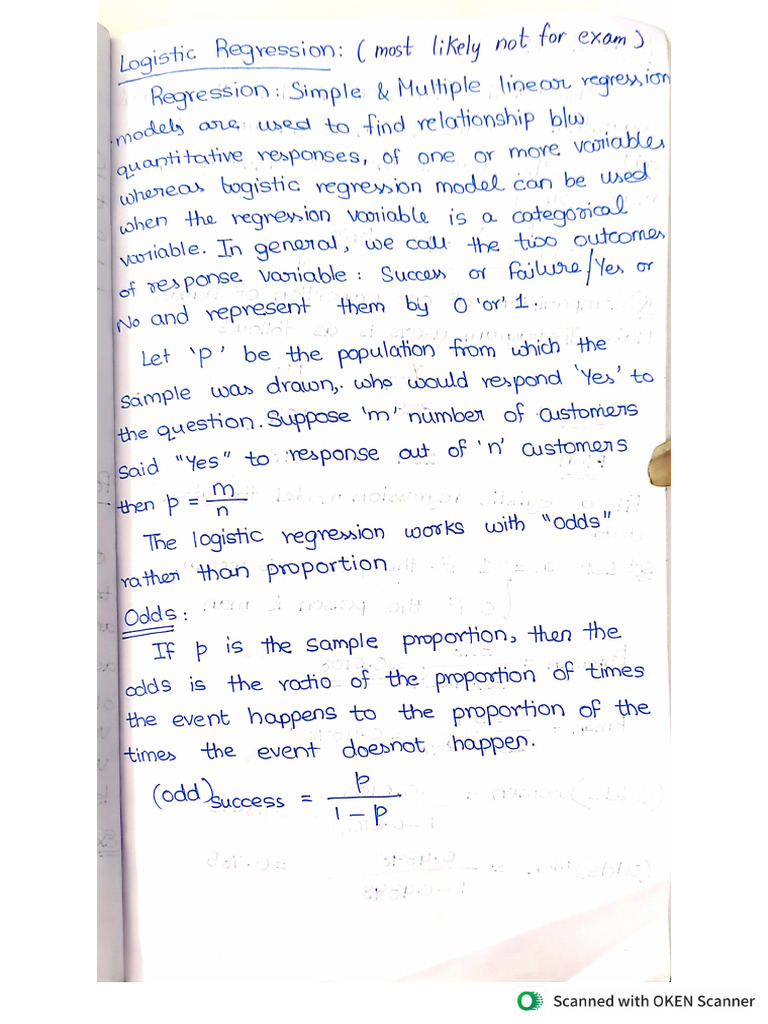 Logistic Regression: (most likely not for exam)
Regression: Simple & Multiple linear regression
models are used to find relationship b/w
quantitative responses, of one or more variables
whereas logistic regression model can be used
when the regression variable is a categorical
variable. In general, we call the two outcomes
of response variable: Success or Failure/Yes or
No and represent them by 0 'or' 1.
Let 'p' be the population from which the
sample was drawn, who would respond 'Yes' to
the question. Suppose 'm' number of customers
said "Yes" to response out of 'n' customers
then p = m/n
The logistic regression works with "odds"
rather than proportion
Odds:
If p is the sample proportion, then the
odds is the ratio of the proportion of times
the event happens to the proportion of the
times the event doesnot happen.
(odd)success = p/1-p
Scanned with OKEN Scanner